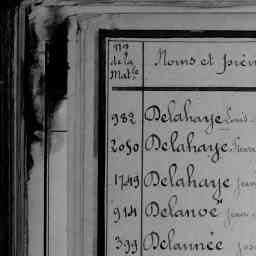 Nos
de la
Matle
Noms et préno
982 Delahaye Louis
2050 Delahaye Pierre
1749 Delahaye
914 Delanoë
399 Delaunée